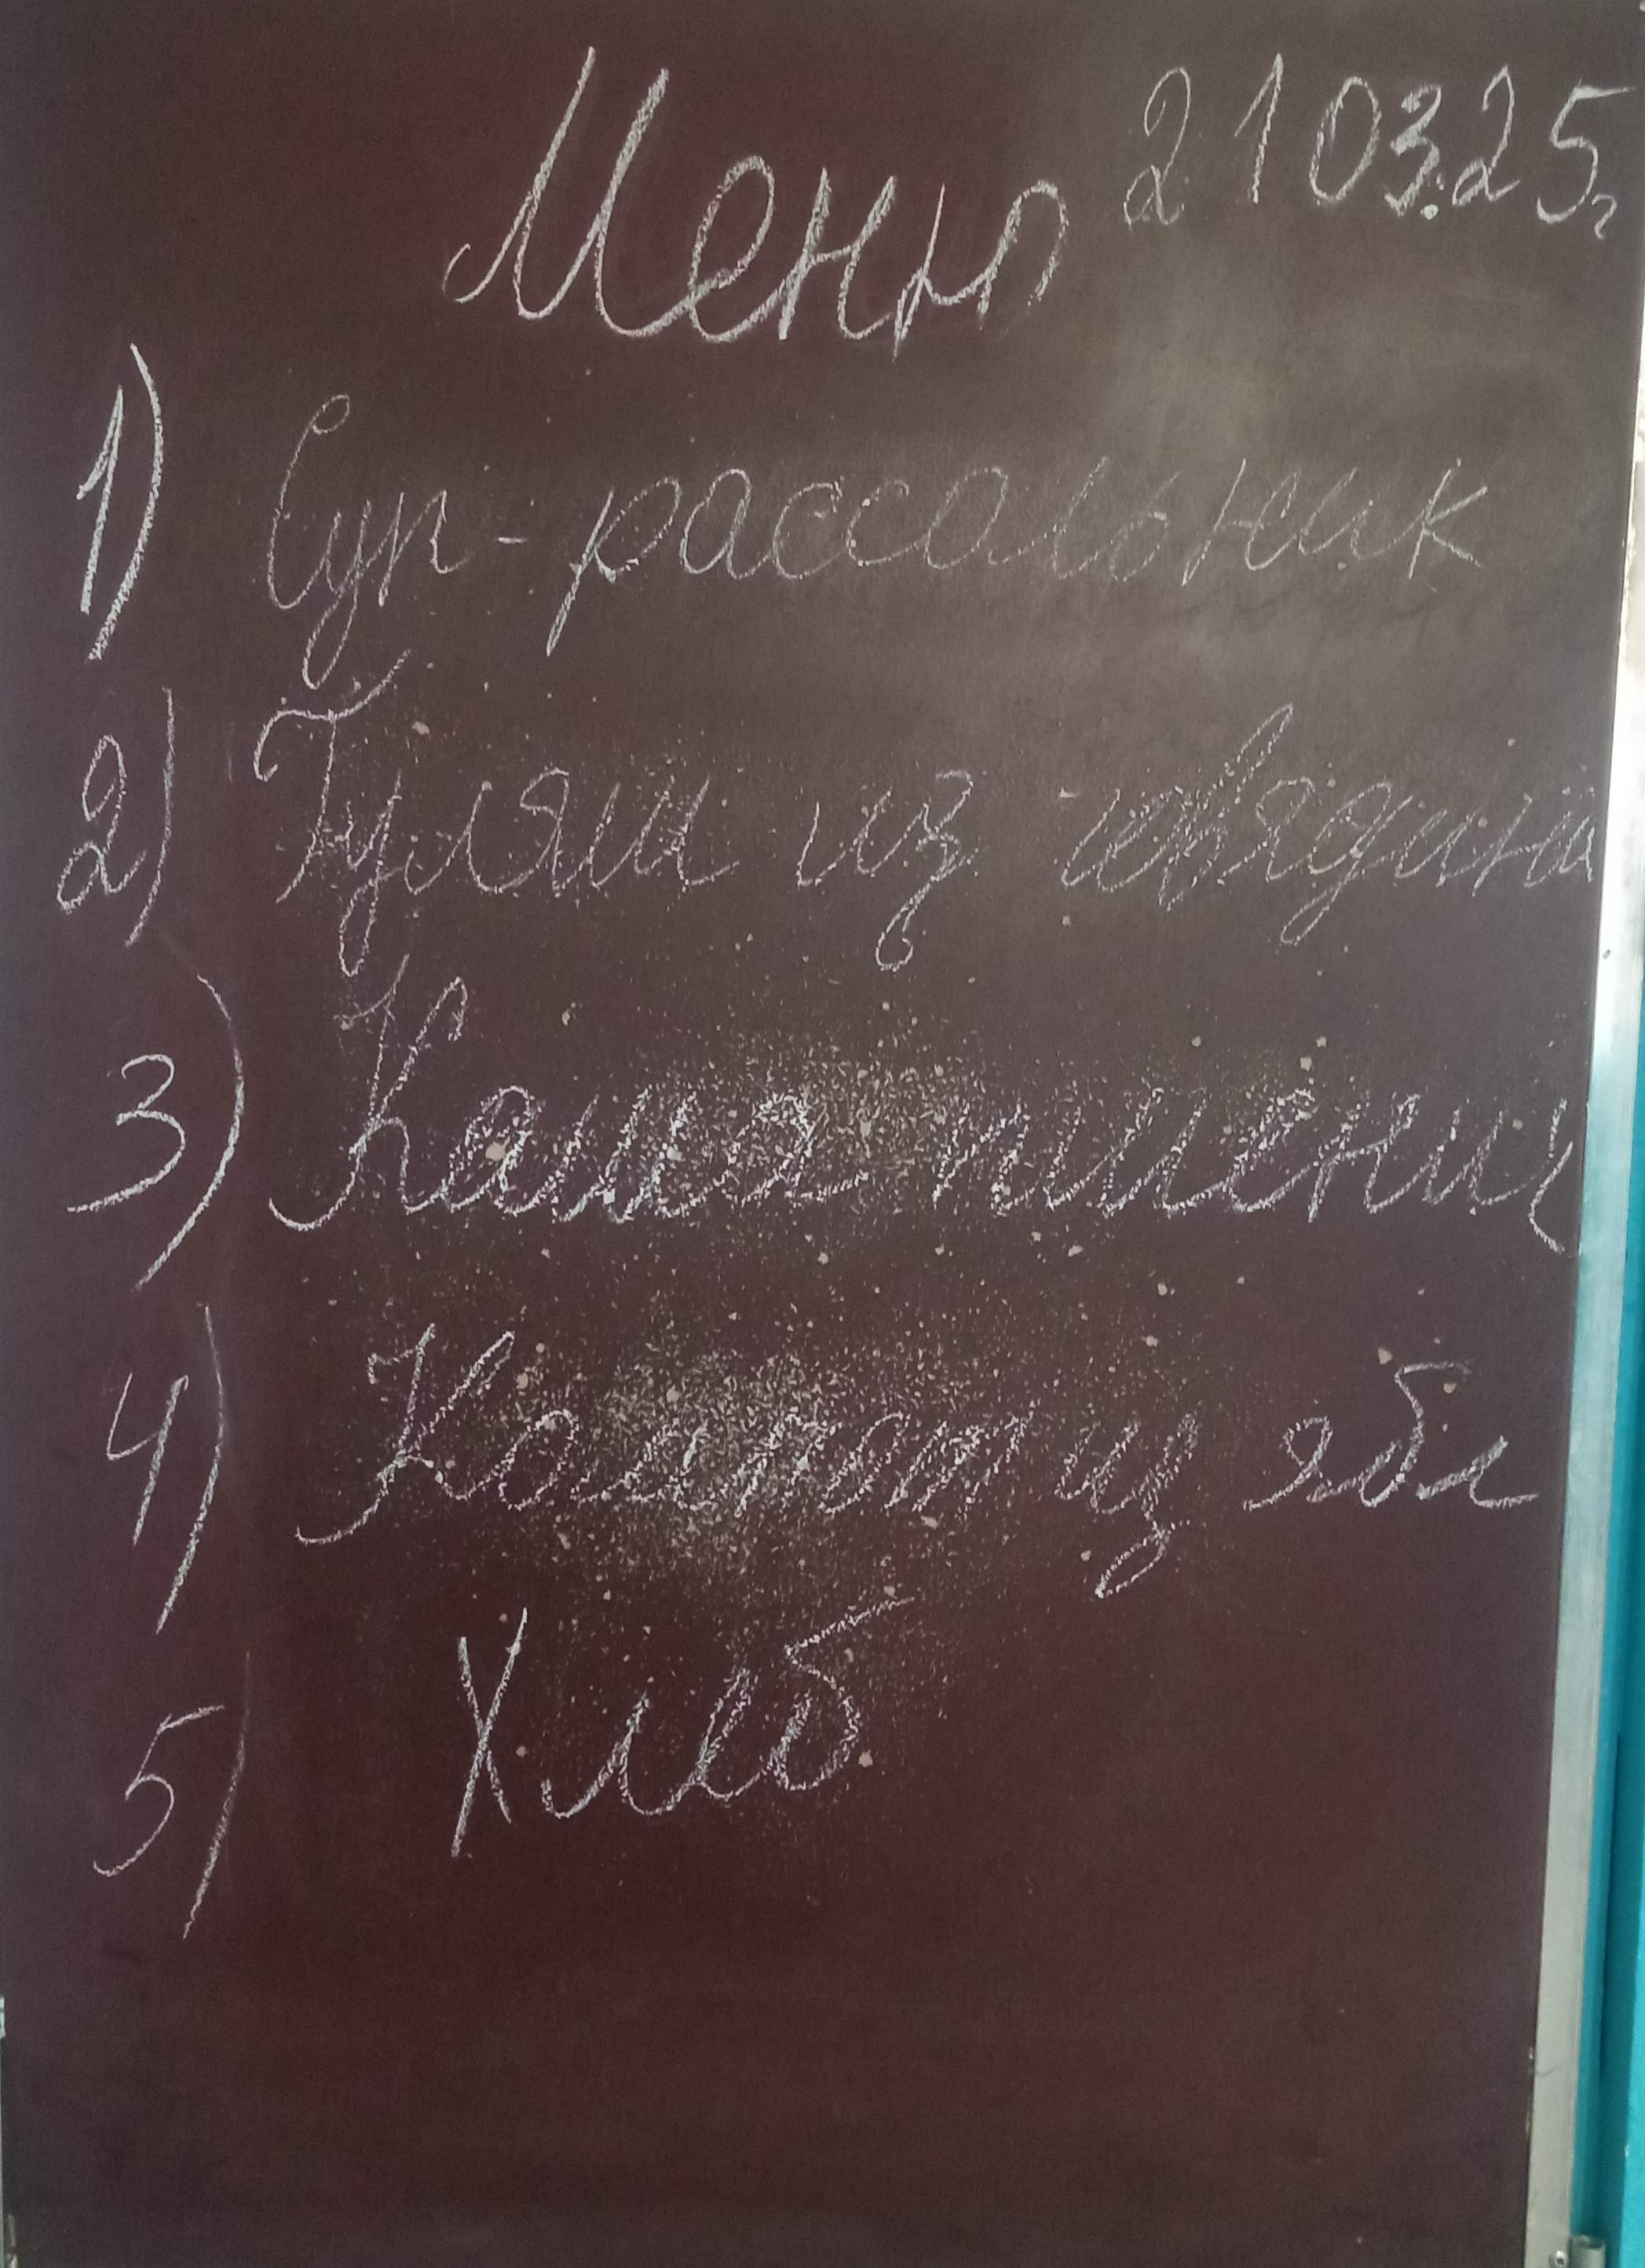 Меню 21 03.25г
1) Суп-рассольник
2) Гуляш из говядины
3) Каша пшениц
4) Компот из ябл
5) Хлеб